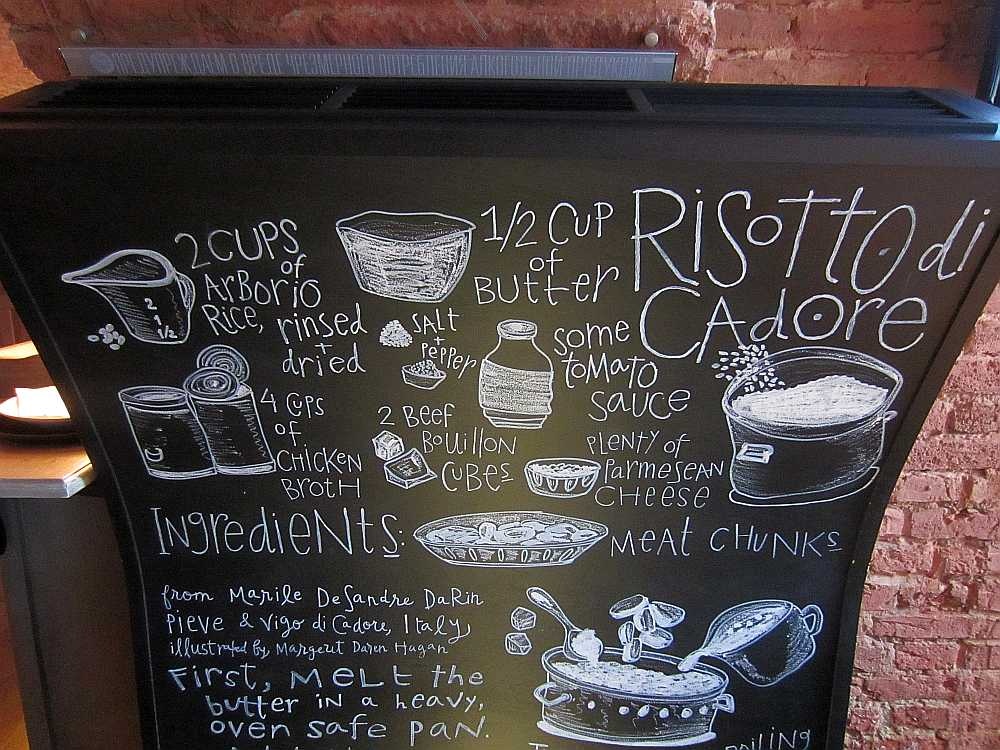 ПРЕДУПРЕЖДАЕМ О ВРЕДЕ ЧРЕЗМЕРНОГО ПОТРЕБЛЕНИЯ АЛКОГОЛЬ
RISOTTO di
CADORE
2 CUPS
of
ArBOriO
RICE,
rinsed
+
dried
1/2 CUP
of
BUTTer
SALT
+
PEPPER
SOME
TOMATO
SAUCE
4 CUPS
OF
CHICKEN
BROTH
2 BEEF
BOUILLON
CUBES
PLENTY OF
PARMESEAN
CHEESE
INgredieNTS:
MEAT CHUNKS
from Marile DeSandre DaRin
Pieve & Vigo di Cadore, Italy
illustrated by Margerit Daren Hagan
First, MELT the
butter IN a heavy,
oven safe pan.